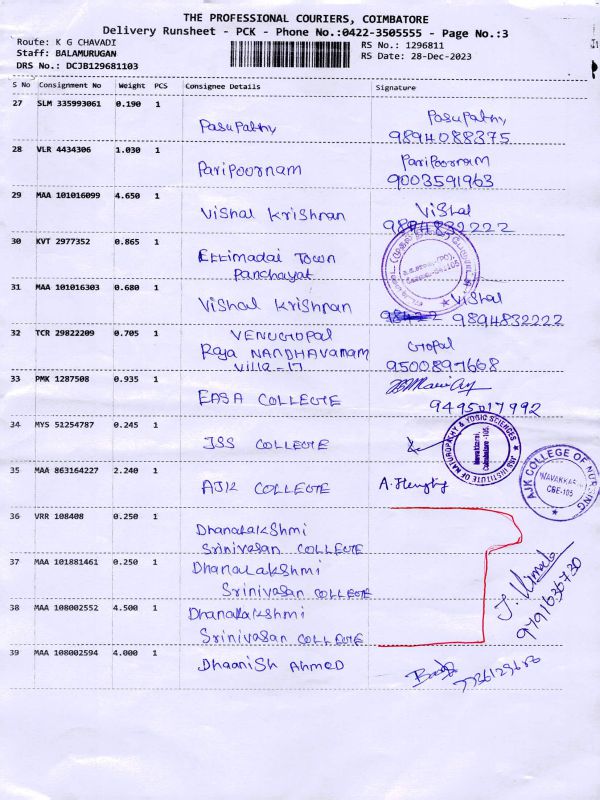 THE PROFESSIONAL COURIERS, COIMBATORE
Delivery Runsheet - PCK - Phone No.:0422-3505555 - Page No.:3
Route: K G CHAVADI
Staff: BALAMURUGAN
DRS No.: DCJB129681103
RS No.: 1296811
RS Date: 28-Dec-2023
S No Consignment No Weight PCS Consignee Details Signature
27 SLM 335993061 0.190 1 Pasupathy Pasupathy
9894088375
28 VLR 4434306 1.030 1 Paripoornam Paripoornam
9003591963
29 MAA 101016099 4.650 1 Vishal Krishnan Vishal
9894832222
30 KVT 2977352 0.865 1 Ettimadai Town
Panchayat
31 MAA 101016303 0.680 1 Vishal Krishnan Vishal
9894832222
32 TCR 29822209 0.705 1 VENUGOPAL Gopal
Raja NANDHAVANAM
Villa-17 9500897668
33 PMK 1287508 0.935 1 EASA COLLEGE
9495017992
34 MYS 51254787 0.245 1 JSS COLLEGE
JSS INSTITUTE OF NATUROPATHY & YOGIC SCIENCES
Navakkarai,
Coimbatore -105
35 MAA 863164227 2.240 1 AJK COLLEGE
AJK COLLEGE OF NURSING
NAVAKKARAI
CBE-105
36 VRR 108408 0.250 1 Dhanalakshmi
Srinivasan COLLEGE
37 MAA 101881461 0.250 1 Dhanalakshmi
Srinivasan COLLEGE
38 MAA 108002552 4.500 1 Dhanalakshmi
Srinivasan COLLEGE
J. Vimala
9791636730
39 MAA 108002594 4.000 1 Dhaanish Ahmed